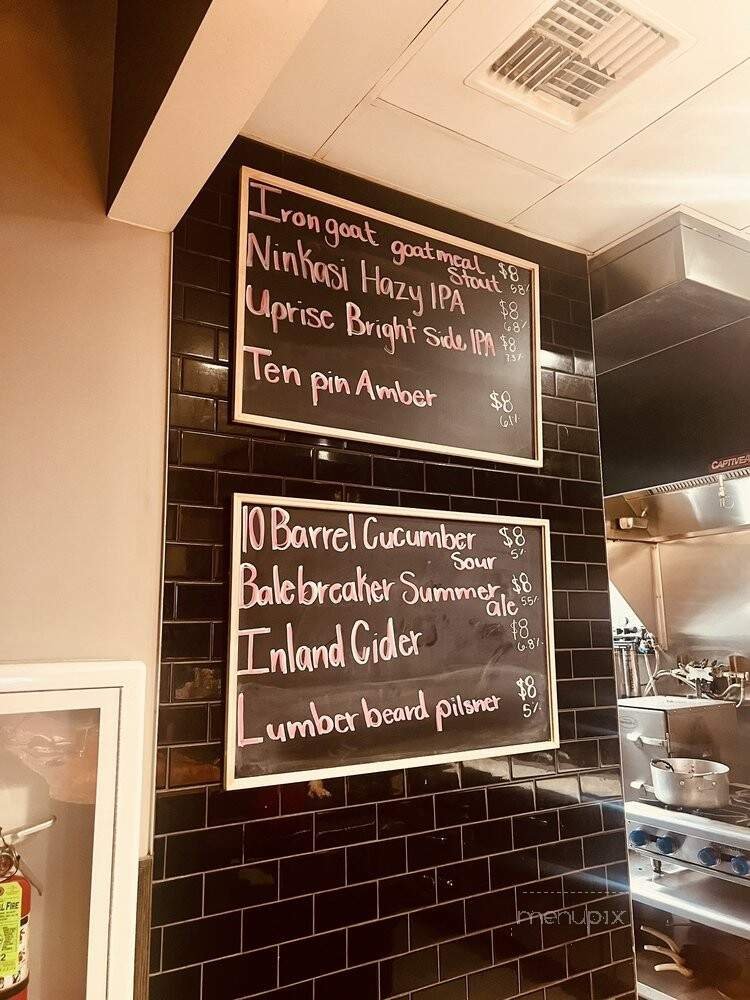 Iron goat goatmeal $8
Stout 5.8%
Ninkasi Hazy IPA $8
6.8%
Uprise Bright Side IPA $8
7.3%
Ten pin Amber $8
6.1%
10 Barrel Cucumber $8
Sour 5%
Balebreaker Summer $8
ale 5.5%
Inland Cider $8
6.8%
Lumber beard pilsner $8
5%
CAPTIVEA
menupix